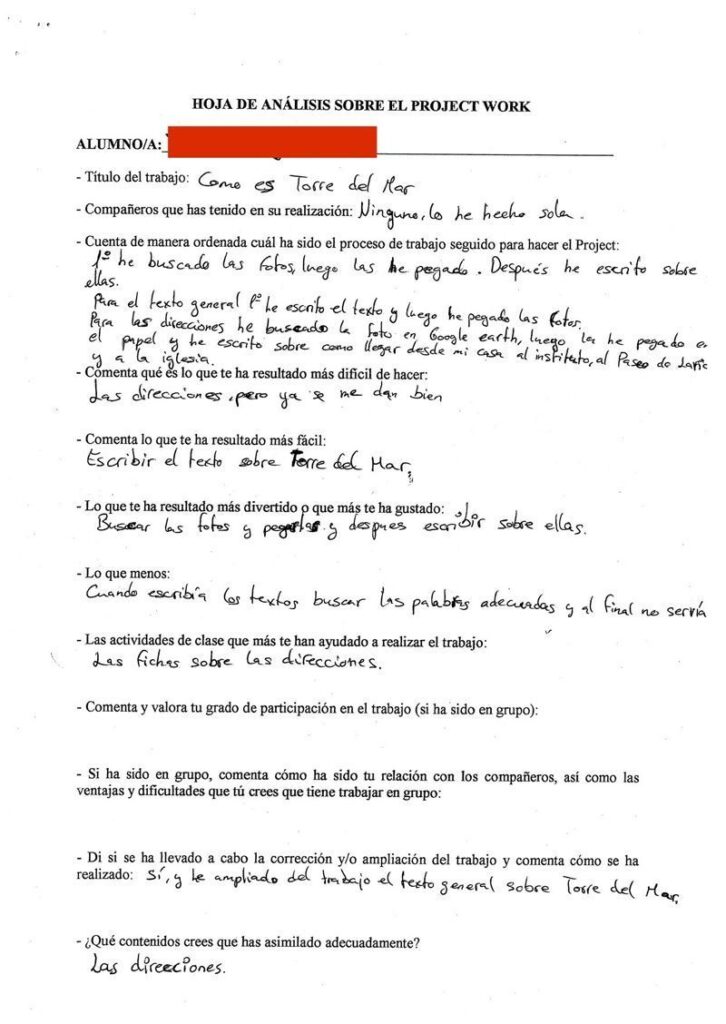 HOJA DE ANÁLISIS SOBRE EL PROJECT WORK
ALUMNO/A:
- Título del trabajo: Como es Torre del Mar
- Compañeros que has tenido en su realización: Ninguno, lo he hecho sola.
- Cuenta de manera ordenada cuál ha sido el proceso de trabajo seguido para hacer el Project:
1º he buscado las fotos, luego las he pegado. Después he escrito sobre
ellas.
Para el texto general 1º he escrito el texto y luego he pegado las fotos.
Para las direcciones he buscado la foto en Google earth, luego la he pegado e
el papel y he escrito sobre como llegar desde mi casa al instituto, al Paseo de Laric
y a la iglesia.
- Comenta qué es lo que te ha resultado más difícil de hacer:
Las direcciones, pero ya se me dan bien
- Comenta lo que te ha resultado más fácil:
Escribir el texto sobre Torre del Mar.
- Lo que te ha resultado más divertido o que más te ha gustado:
Buscar las fotos y pegarlas y despues escribir sobre ellas.
- Lo que menos:
Cuando escribía los textos buscar las palabras adecuadas y al final no servía
- Las actividades de clase que más te han ayudado a realizar el trabajo:
Las fichas sobre las direcciones.
- Comenta y valora tu grado de participación en el trabajo (si ha sido en grupo):
- Si ha sido en grupo, comenta cómo ha sido tu relación con los compañeros, así como las
ventajas y dificultades que tú crees que tiene trabajar en grupo:
- Di si se ha llevado a cabo la corrección y/o ampliación del trabajo y comenta cómo se ha
realizado: Sí, y he ampliado del trabajo el texto general sobre Torre del Mar.
- ¿Qué contenidos crees que has asimilado adecuadamente?
Las direcciones.